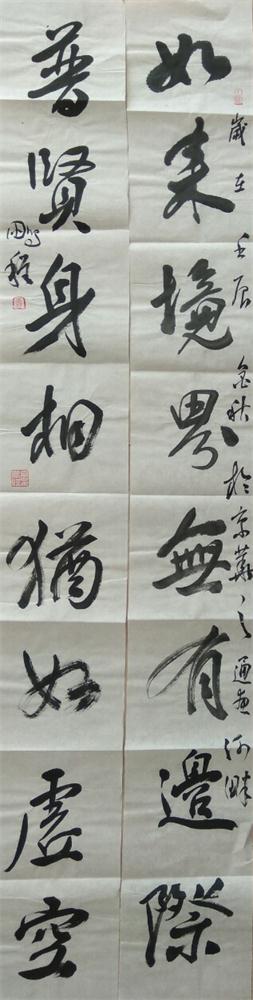 如來境界無有邊際
歲在壬辰金秋於京華之通惠河畔
普賢身相猶如虛空
鵬程